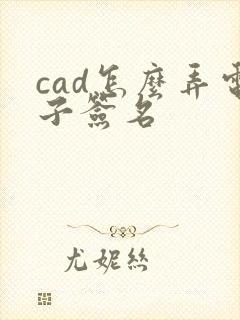 cad怎麽弄電
子簽名
尤妮絲